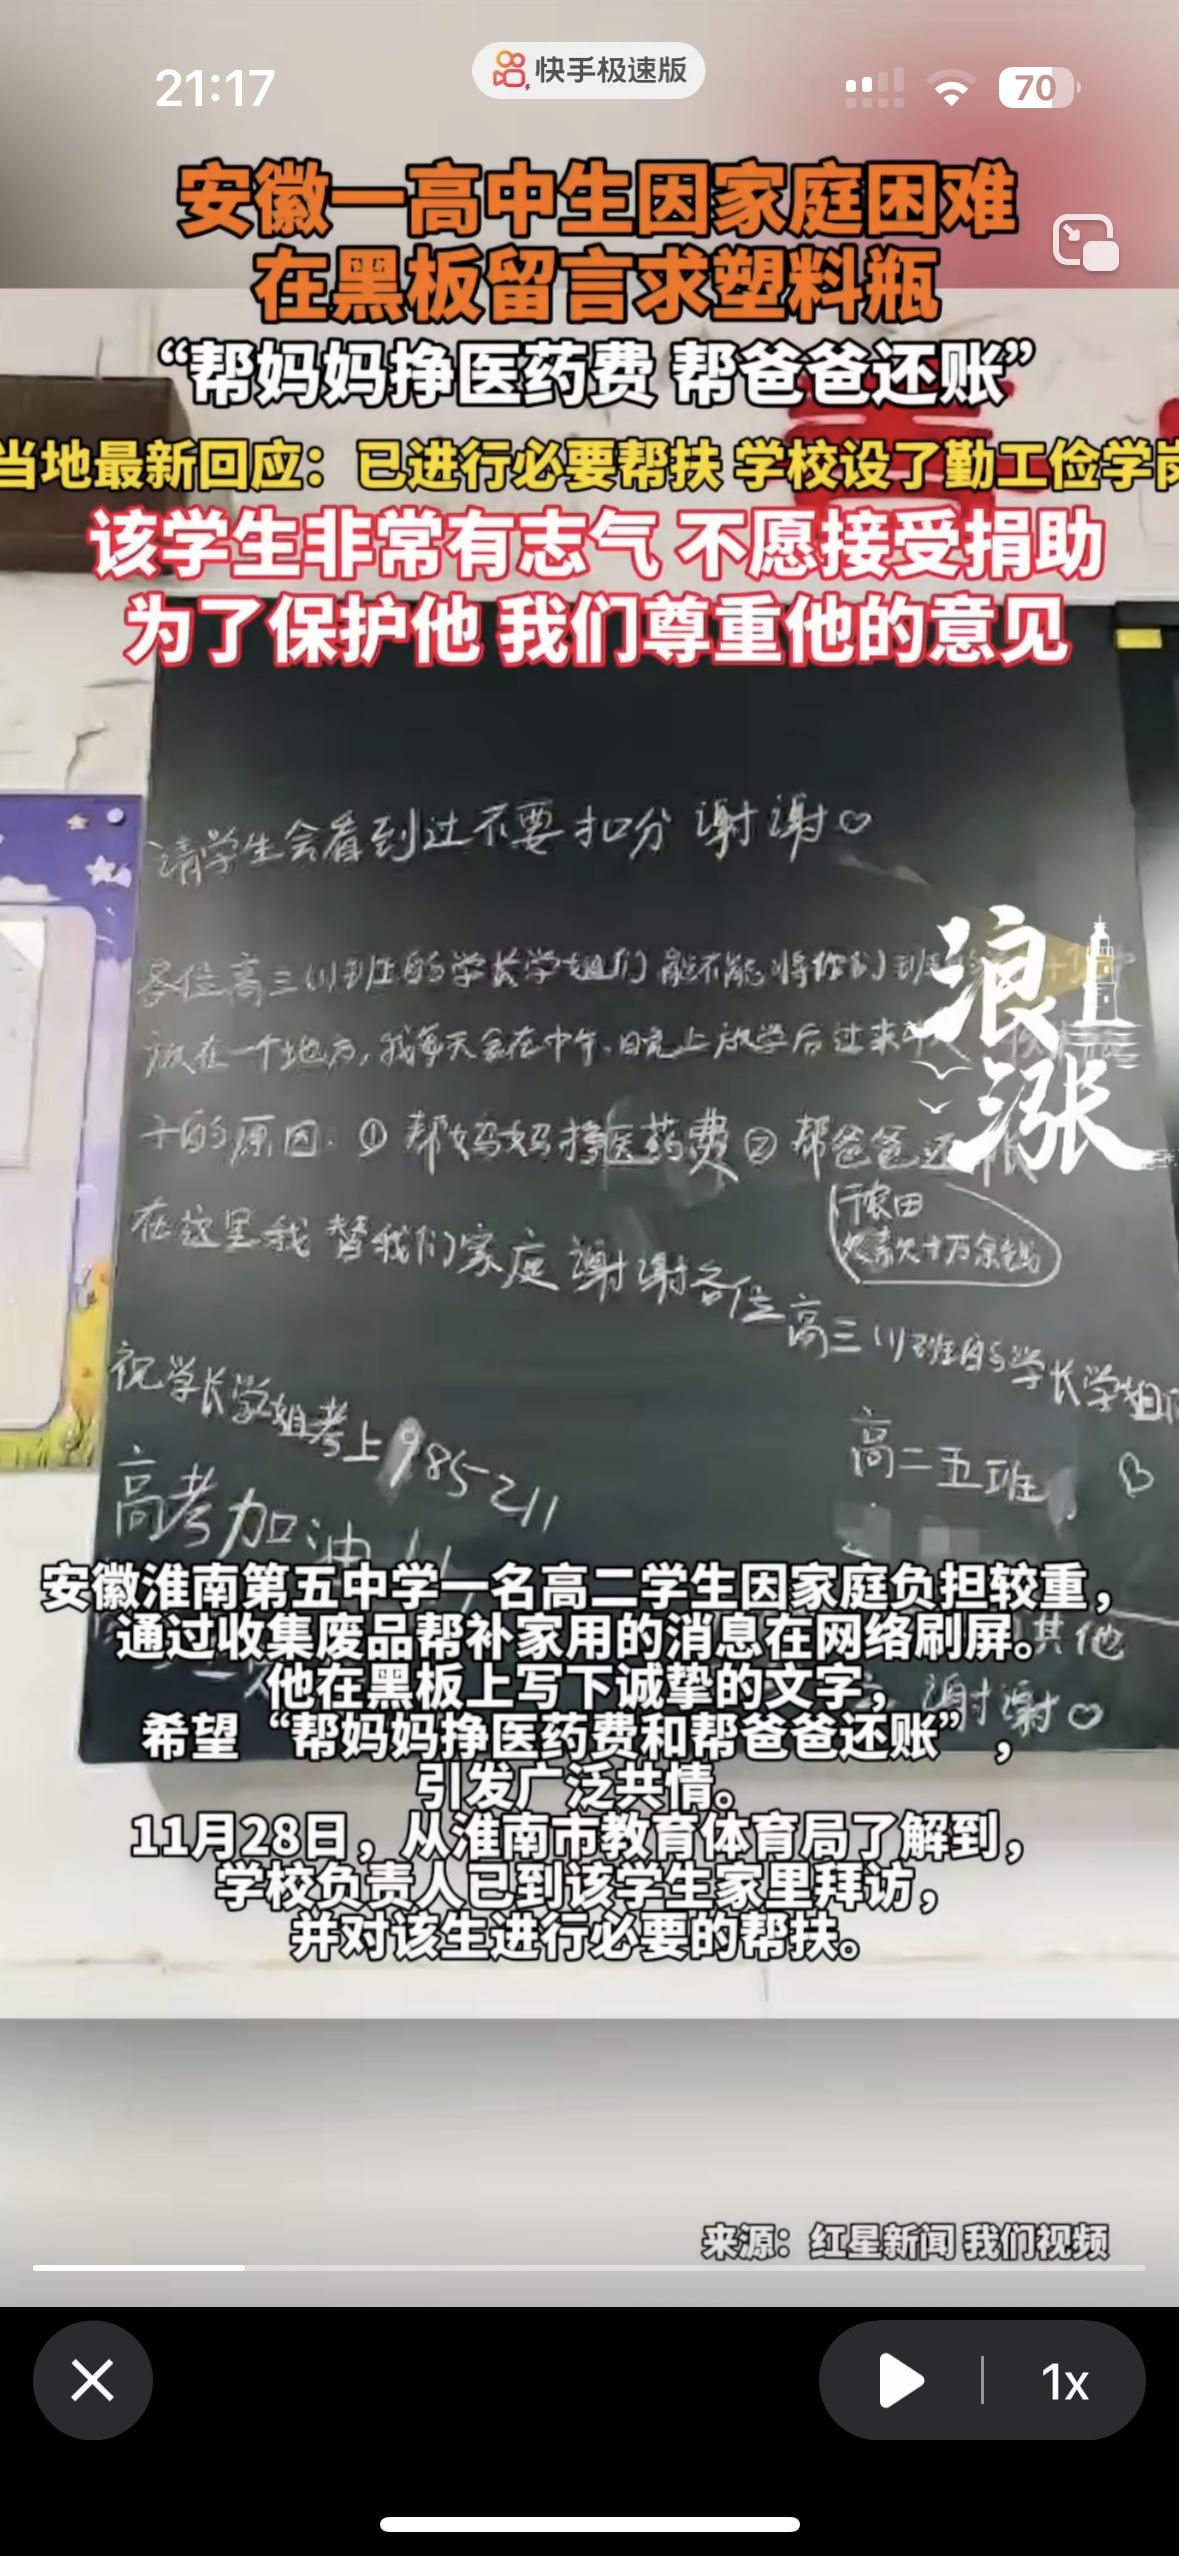 21:17
快手极速版
70
安徽一高中生因家庭困难
在黑板留言求塑料瓶
“帮妈妈挣医药费 帮爸爸还账”
当地最新回应：已进行必要帮扶 学校设了勤工俭学岗
该学生非常有志气 不愿接受捐助
为了保护他 我们尊重他的意见
请学生会看到过不要扣分 谢谢♡
各位高三(1)班的学长学姐们能不能将你们班
放在一个地方，我每天会在中午、晚上放学后过来
浪涨
的原因：① 帮妈妈挣医药费 ② 帮爸爸还
干农田
欠款十万余钱
在这里我替我们家庭谢谢各位高三(1)班的学长学姐
祝学长学姐考上985 211
高二五班
高考加油
安徽淮南第五中学一名高二学生因家庭负担较重，
通过收集废品帮补家用的消息在网络刷屏。
其他
他在黑板上写下诚挚的文字，
谢谢♡
希望“帮妈妈挣医药费和帮爸爸还账”，
引发广泛共情。
11月28日，从淮南市教育体育局了解到，
学校负责人已到该学生家里拜访，
并对该生进行必要的帮扶。
来源：红星新闻 我们视频
1x